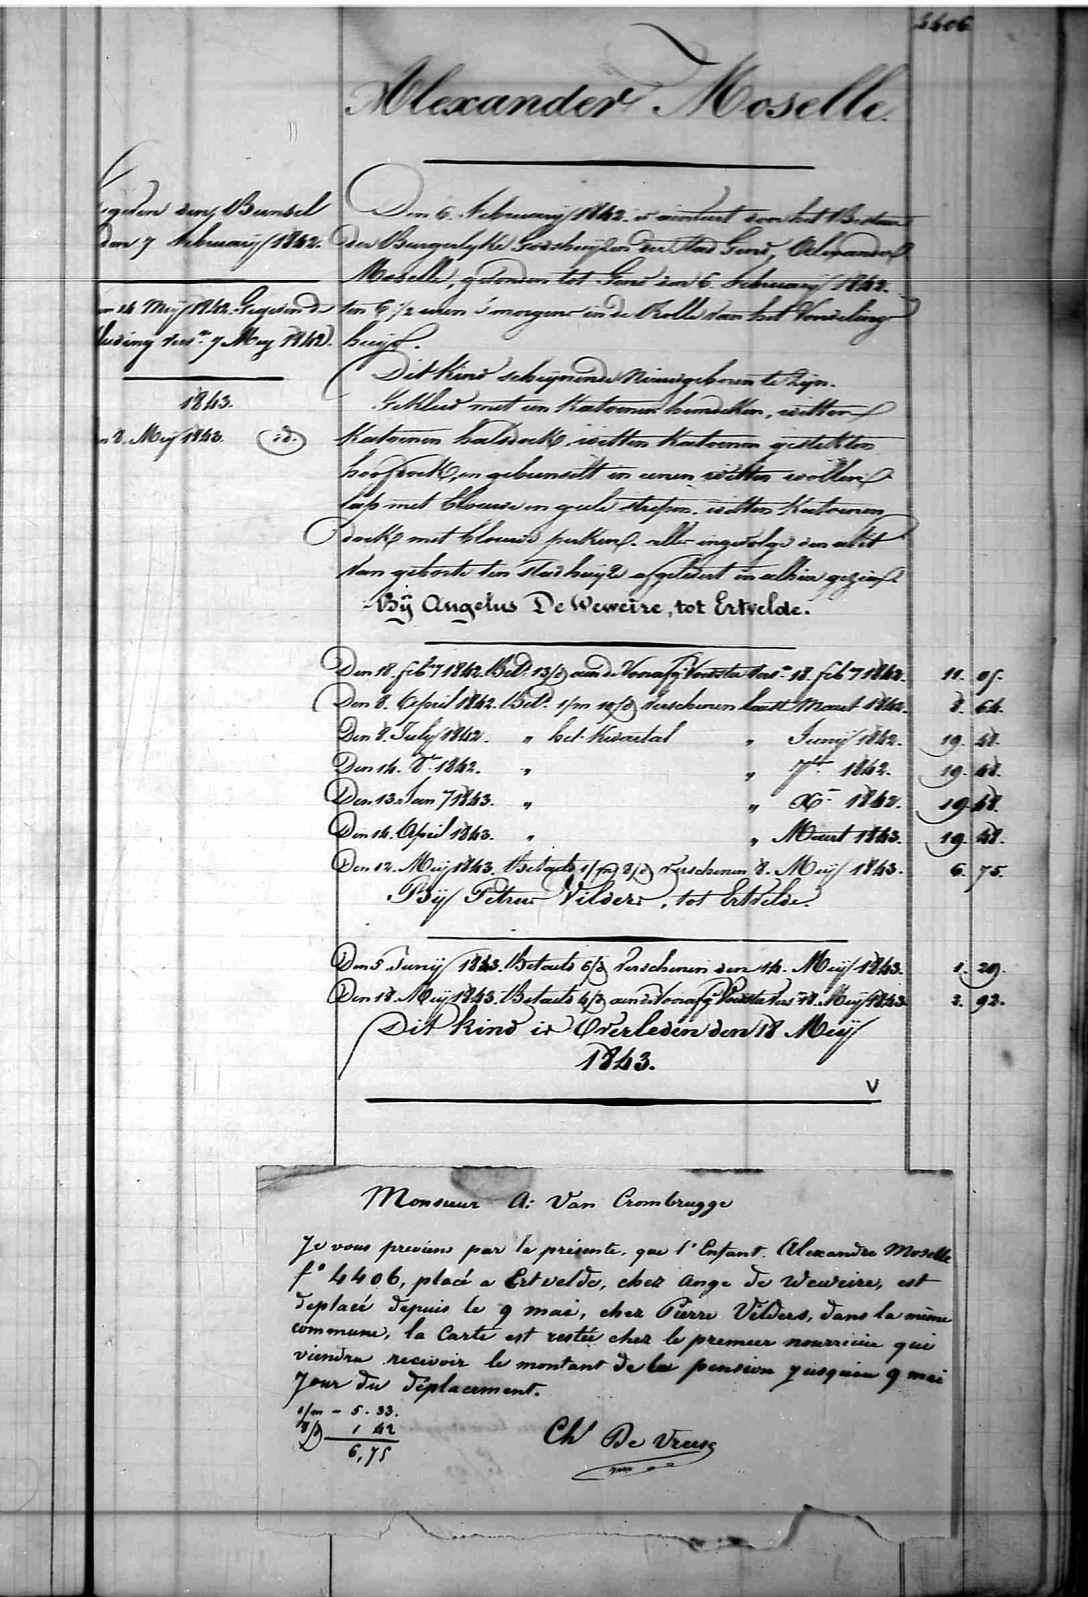 4406
Alexander Moselle.
gegeven den Bunsel
den 7 February 1842.
14 Meÿ 1842. Gegeven de
kleeding vers.n 7 Meÿ 1842.
1843.
8. Meÿ 1843. id.
Den 6. February 1842. is aenveert door het Bestuer
der Burgerlyke Godshuyzen der stad Gend, Alexander
Moselle, gevonden tot Gend den 6. February 1842.
ten 6 1/2 uren 's morgens in de Rolle van het Vondeling
huys.
Dit kind schynende Nieuwgeboren te zyn.
Gekleed met een Katoenen hemdeken, witten
Katoenen halsdoek, witten Katoenen gestekten
hoofdoek, en gebunselt in eenen witten wollen
lap met blouwe en geele strepen, witten Katoenen
doek met blouwe perken. alles ingevolge den akt
van geboorte ten Stadhuyze afgelevert en alhier gezien.
Bÿ Angelus De Weweire, tot Ertvelde.
Den 18. feb.ry 1842. Bet.d 13/d aen de Voorafg. Voedster vers.n 18. feb.ry 1842. 11. 05.
Den 8. April 1842. Bet.d 1/m 10/d verschenen laest Maert 1842. 8. 64.
Den 8. July 1842. " het Kwartal " Junÿ 1842. 19. 48.
Den 14. 8.r 1842. " " 7.r 1842. 19. 48.
Den 13. Jan.y 1843. " " X.r 1842. 19. 48.
Den 14. April 1843. " " Maert 1843. 19. 48.
Den 12. Meÿ 1843. Betaelt 1/m 8/d verschenen 8. Meÿ 1843. 6. 75.
Bÿ Petrus Vilders, tot Ertvelde.
Den 5 Junÿ 1843. Betaelt 6/d verschenen den 14. Meÿ 1843. 1. 29.
Den 18. Meÿ 1843. Betaelt 4/d aen de Voorafg. Voedster vers. 18. Meÿ 1843. 2. 92.
Dit kind is Overleden den 18 Meÿ
1843.
V
Monsieur A: Van Crombrugge
Je vous previens par la présente, que l'Enfant. Alexandre Moselle
f.o 4406, placé a Ertvelde, chez Ange de Weweire, est
deplacé depuis le 9 mai, chez Pierre Vilders, dans la même
commune, la Carte est restée chez le premier nourricier qui
viendra recevoir le montant de la pension jusqu'au 9 mai
Jour du déplacement.
1/m - 5. 33.
8/d 1 42
6,75
Ch De Vreese